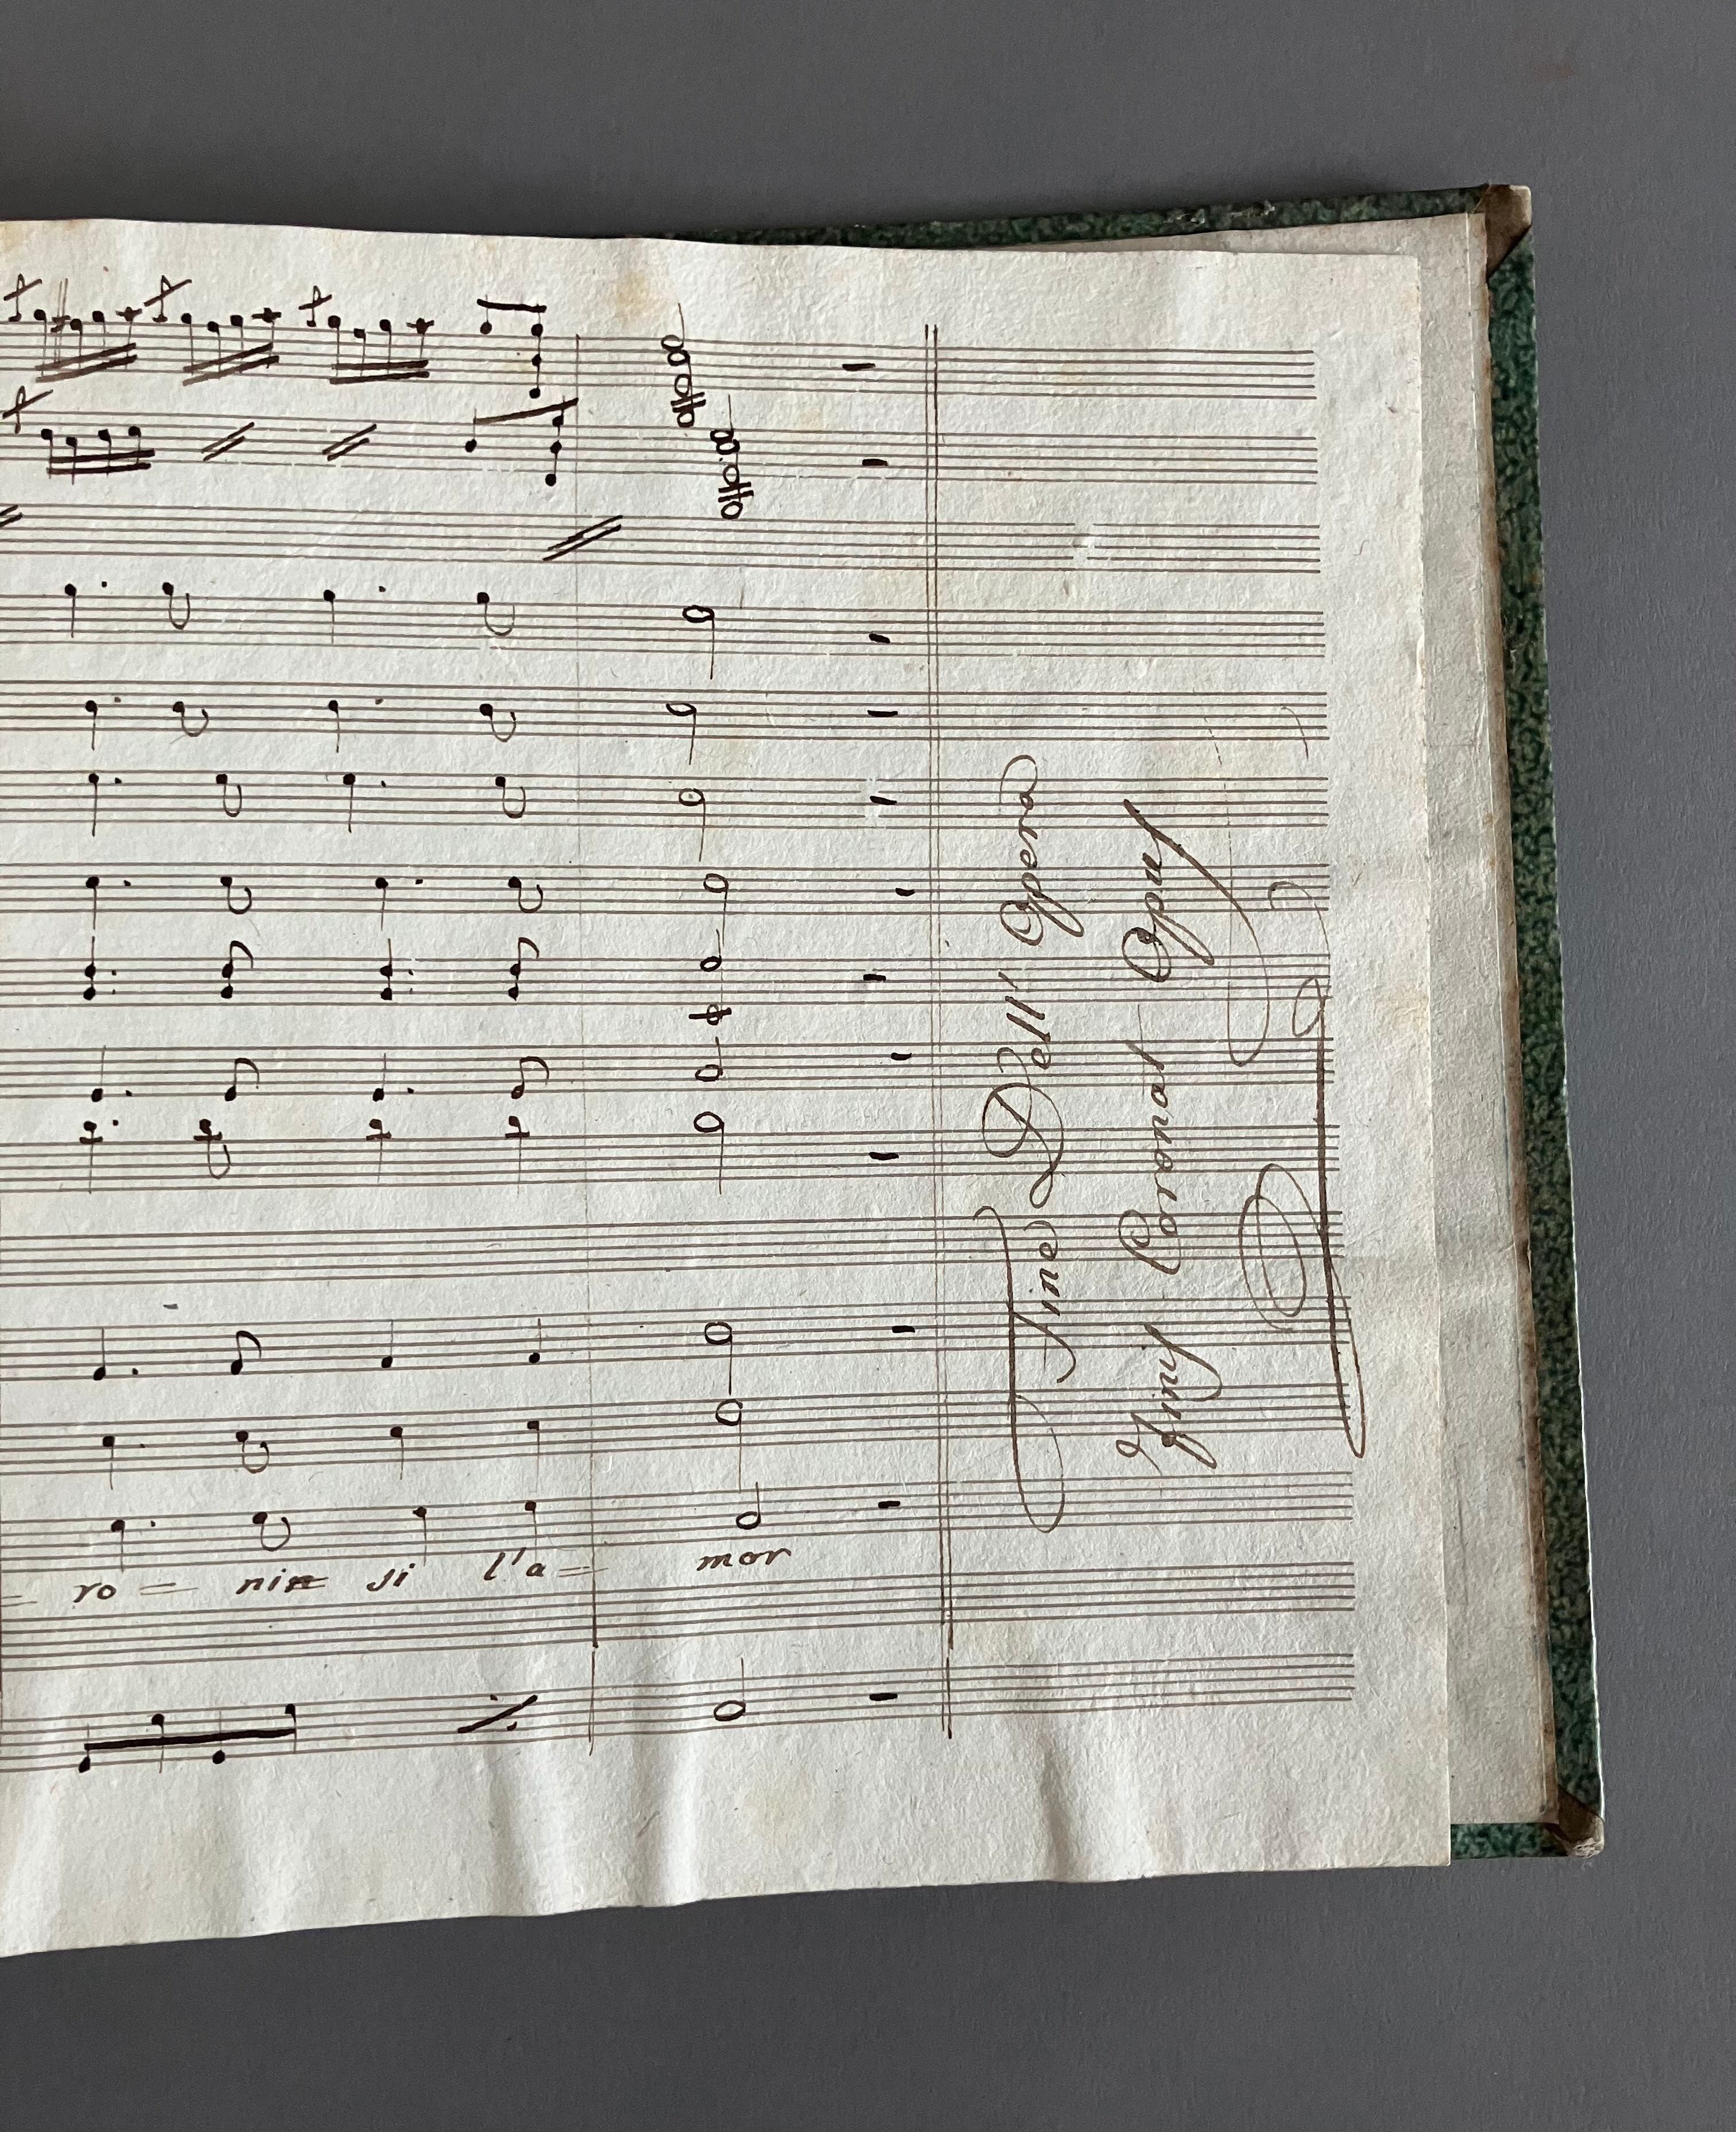 ro = ni= si l'a= mor
Fine Dell' Opera
Finis Coronat Opus